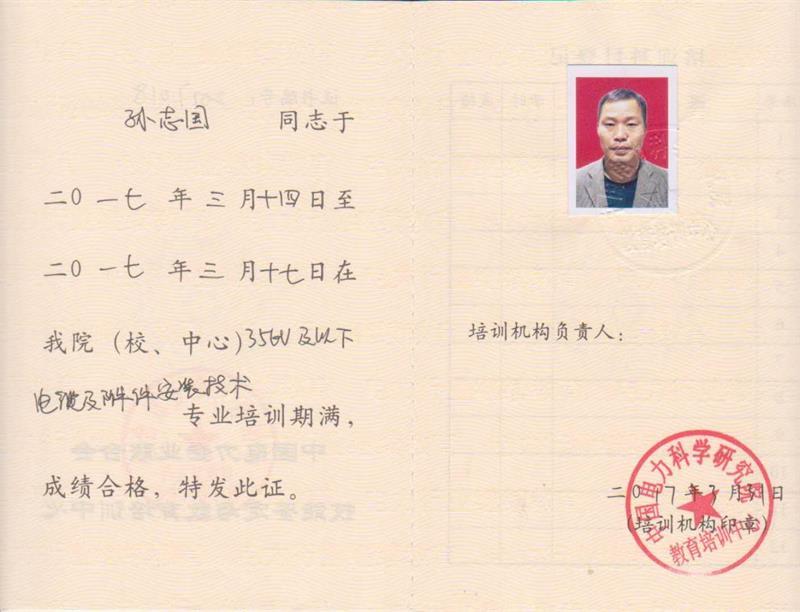 孙志国 同志于
二〇一七年三月十四日至
二〇一七年三月十七日在
我院（校、中心）35kV及以下
电缆及附件安装技术
专业培训期满，
成绩合格，特发此证。
培训机构负责人：
二〇17年3月31日
（培训机构印章）
中国电力科学研究院
教育培训中心